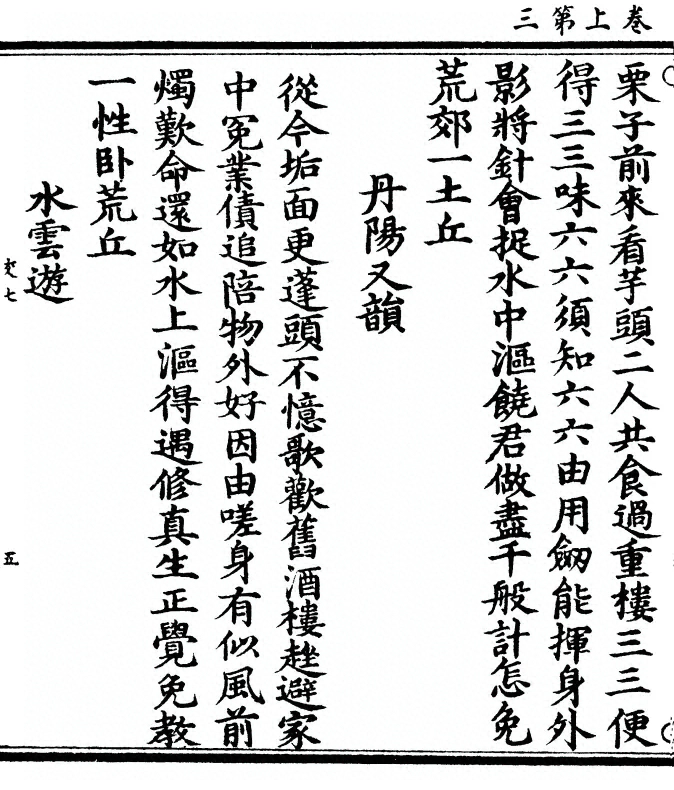 卷上第三
栗子前來看芋頭二人共食過重樓三三便
得三三味六六須知六六由用劒能揮身外
影將針會捉水中漚饒君做盡千般計怎免
荒郊一土丘
丹陽又韻
從今垢面更蓬頭不憶歌歡舊酒樓趖避家
中冤業債追陪物外好因由嗟身有似風前
燭歎命還如水上漚得遇修真生正覺免教
一性卧荒丘
水雲遊
五